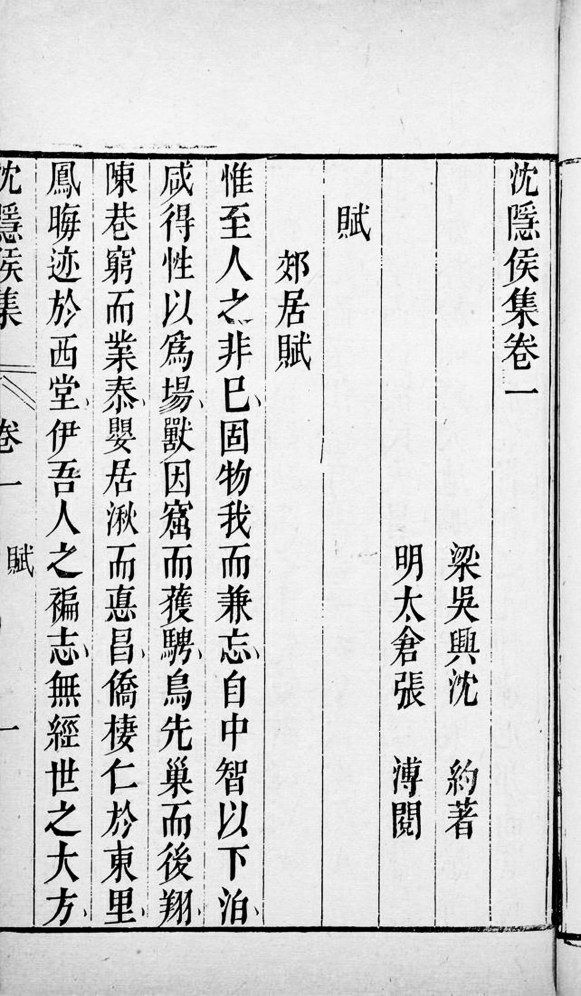 沈隱侯集卷一
梁吳興沈 約著
明太倉張 溥閱
賦
郊居賦
惟至人之非已固物我而兼忘自中智以下洎
咸得性以爲場獸因窟而獲騁鳥先巢而後翔
陳巷窮而業泰嬰居湫而悳昌僑棲仁於東里
鳳晦迹於西堂伊吾人之褊志無經世之大方
沈隱侯集 卷一 賦 一